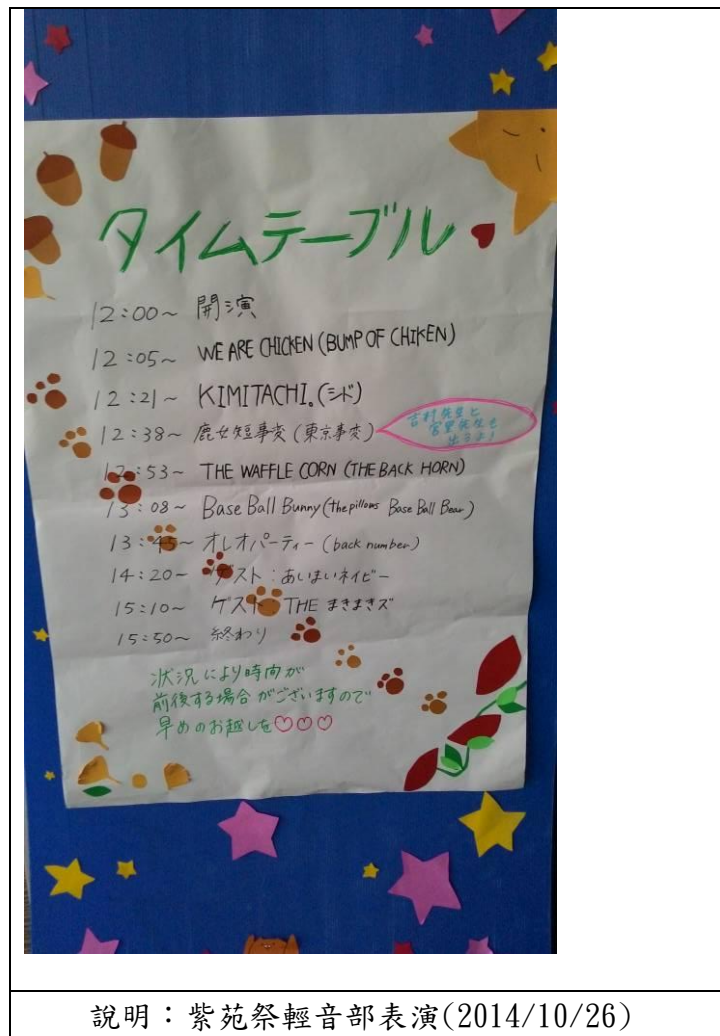 タイムテーブル
12:00～ 開演
12:05～ WE ARE CHICKEN (BUMP OF CHIKEN)
12:21～ KIMITACHI。(シド)
12:38～ 鹿女短事変 (東京事変)
吉村先生と
宮里先生も
出るよ！
12:53～ THE WAFFLE CORN (THE BACK HORN)
13:08～ Base Ball Bunny (the pillows Base Ball Bear)
13:45～ オレオパーティー (back number)
14:20～ ゲスト:あいまいネイビー
15:10～ ゲスト:THE まきまきズ
15:50～ 終わり
状況により時間が
前後する場合がございますので
早めのお越しを♡♡♡
說明：紫苑祭輕音部表演(2014/10/26)